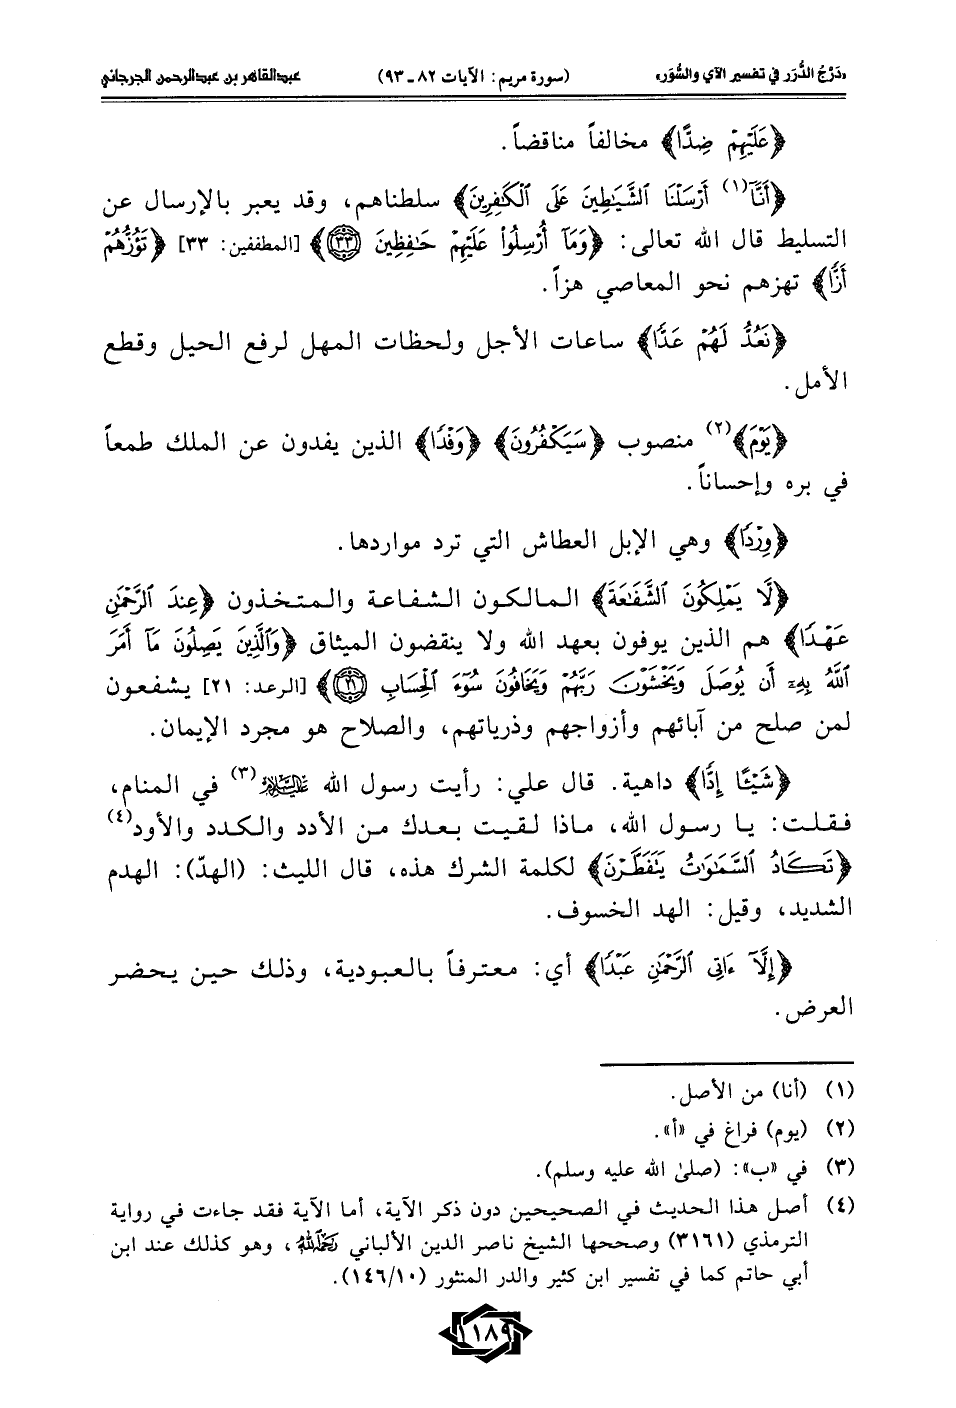 «دَرْجُ الدُّرَر في تفسير الآي والسُّوَر» (سورة مريم: الآيات ٨٢ ـ ٩٣) عبدالقاهر بن عبدالرحمن الجرجاني
﴿عَلَيْهِمْ ضِدًّا﴾ مخالفاً مناقضاً.
﴿أَنَّآ(١) أَرْسَلْنَا ٱلشَّيَٰطِينَ عَلَى ٱلْكَٰفِرِينَ﴾ سلطناهم، وقد يعبر بالإرسال عن
التسليط قال الله تعالى: ﴿وَمَآ أُرْسِلُوا۟ عَلَيْهِمْ حَٰفِظِينَ ٣٣﴾ [المطففين: ٣٣] ﴿تَؤُزُّهُمْ
أَزًّا﴾ تهزهم نحو المعاصي هزاً.
﴿نَعُدُّ لَهُمْ عَدًّا﴾ ساعات الأجل ولحظات المهل لرفع الحيل وقطع
الأمل.
﴿يَوْمَ﴾(٢) منصوب ﴿سَيَكْفُرُونَ﴾ ﴿وَفْدًا﴾ الذين يفدون عن الملك طمعاً
في بره وإحساناً.
﴿وِرْدًا﴾ وهي الإبل العطاش التي ترد مواردها.
﴿لَّا يَمْلِكُونَ ٱلشَّفَٰعَةَ﴾ المالكون الشفاعة والمتخذون ﴿عِندَ ٱلرَّحْمَٰنِ
عَهْدًا﴾ هم الذين يوفون بعهد الله ولا ينقضون الميثاق ﴿وَٱلَّذِينَ يَصِلُونَ مَآ أَمَرَ
ٱللَّهُ بِهِۦٓ أَن يُوصَلَ وَيَخْشَوْنَ رَبَّهُمْ وَيَخَافُونَ سُوٓءَ ٱلْحِسَابِ ٢١﴾ [الرعد: ٢١] يشفعون
لمن صلح من آبائهم وأزواجهم وذرياتهم، والصلاح هو مجرد الإيمان.
﴿شَيْـًٔا إِدًّا﴾ داهية. قال علي: رأيت رسول الله عليه السلام(٣) في المنام،
فقلت: يا رسول الله، ماذا لقيت بعدك من الأدد والكدد والأود(٤)
﴿تَكَادُ ٱلسَّمَٰوَٰتُ يَتَفَطَّرْنَ﴾ لكلمة الشرك هذه، قال الليث: (الهدّ): الهدم
الشديد، وقيل: الهد الخسوف.
﴿إِلَّآ ءَاتِى ٱلرَّحْمَٰنِ عَبْدًا﴾ أي: معترفاً بالعبودية، وذلك حين يحضر
العرض.
(١) (أنا) من الأصل.
(٢) (يوم) فراغ في «أ».
(٣) في «ب»: (صلىٰ الله عليه وسلم).
(٤) أصل هذا الحديث في الصحيحين دون ذكر الآية، أما الآية فقد جاءت في رواية
الترمذي (٣١٦١) وصححها الشيخ ناصر الدين الألباني رحمه الله، وهو كذلك عند ابن
أبي حاتم كما في تفسير ابن كثير والدر المنثور (١٤٦/١٠).
١١٨٩